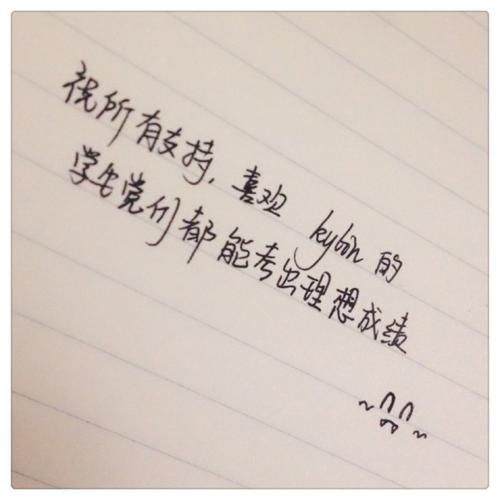 祝所有支持,喜欢 kybin 的
学生党们都能考出理想成绩
~!!~